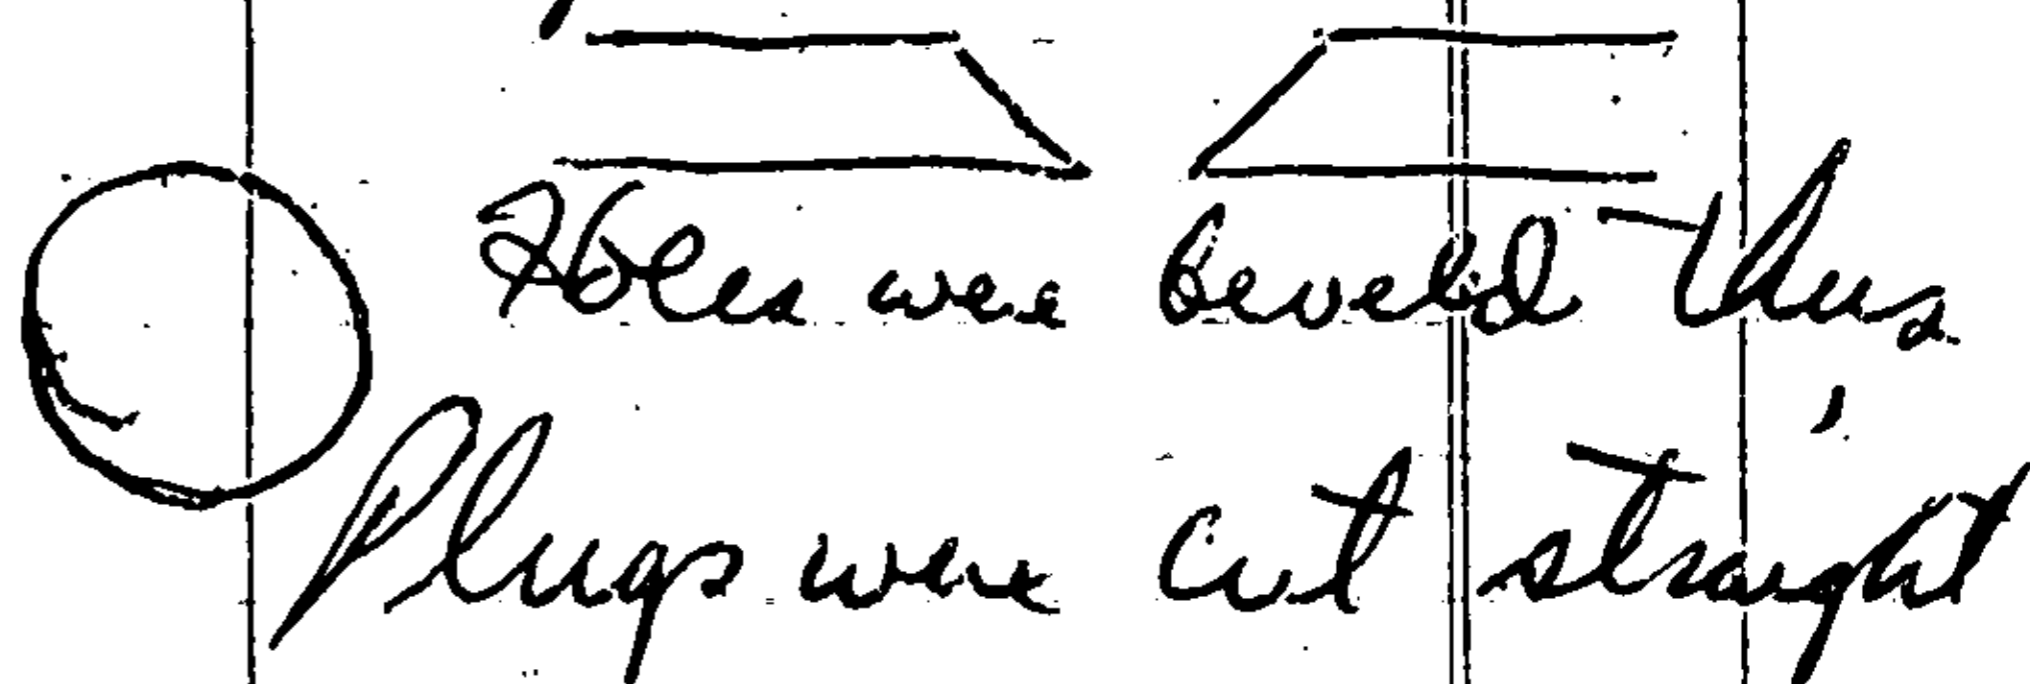 Holes were beveld Thus
Plugs were cut straight